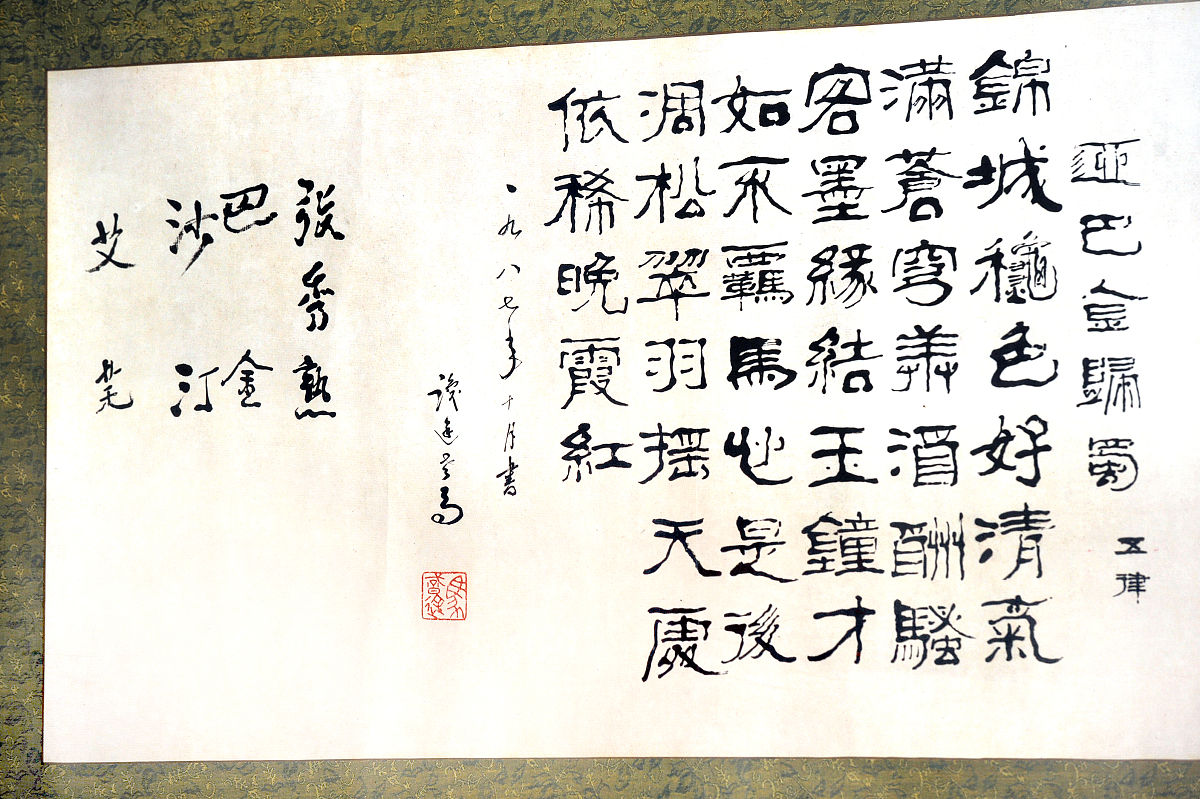 迎巴金歸蜀 五律
錦城穐色好清氣
滿蒼穹美酒酬騷
客墨緣結玉鐘才
如不羈馬心是後
凋松翠羽搖天處
依稀晚霞紅
一九八七年十月書
識途老馬
張秀熟
巴金
沙汀
艾芜